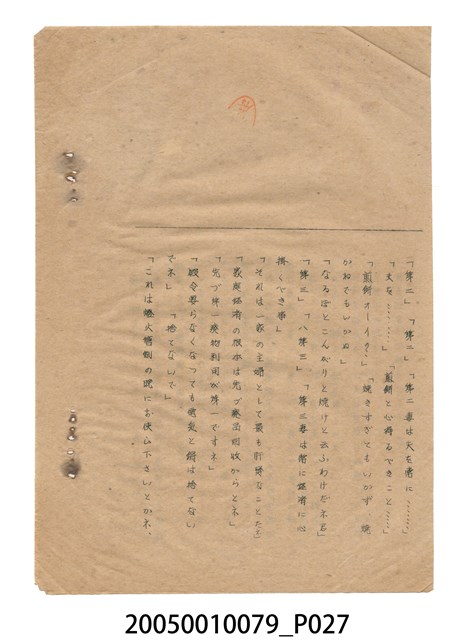 「第二」「第二」「第二毒は夫を常に……」
「夫を………」「煎餅と心得るべきこと……」
「煎餅オーライ」「焼きすぎてもいかず、焼
かねでもいかぬ」
「なるほどこんがりと焼けと云ふわけだネ」
「第三」「ハ第三」「第三毒は常に経済に心
掛くべき事」
「それは一家の主婦として最も行要なことだ」
「家庭経済の根本は先づ廃品回收からとネ」
「先づ牛一廃物利用が第一ですネ」
「縦令要らなくなつても空気と鍋は捨てない
でネ」「捨てないで」
「これは燈火管制の晩にお使ひ下さいとかネ、
20050010079_P027